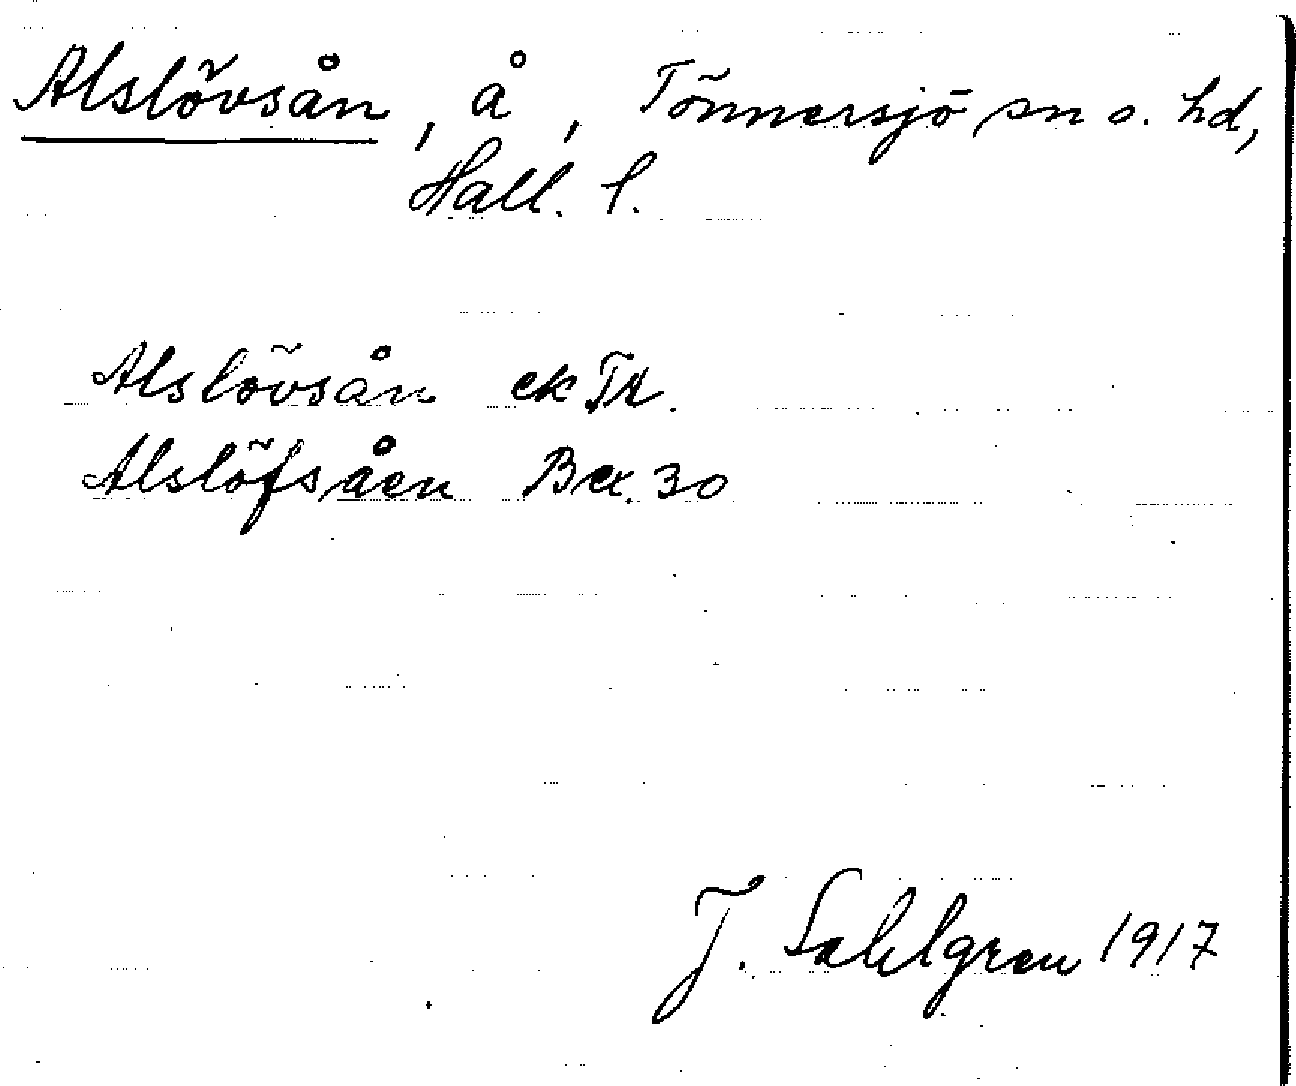 Alslövsån, å, Tönnersjö sn o. hd,
Hall. l.
Alslövsån ek
Alslöfsåen 30
J. Sahlgren 1917